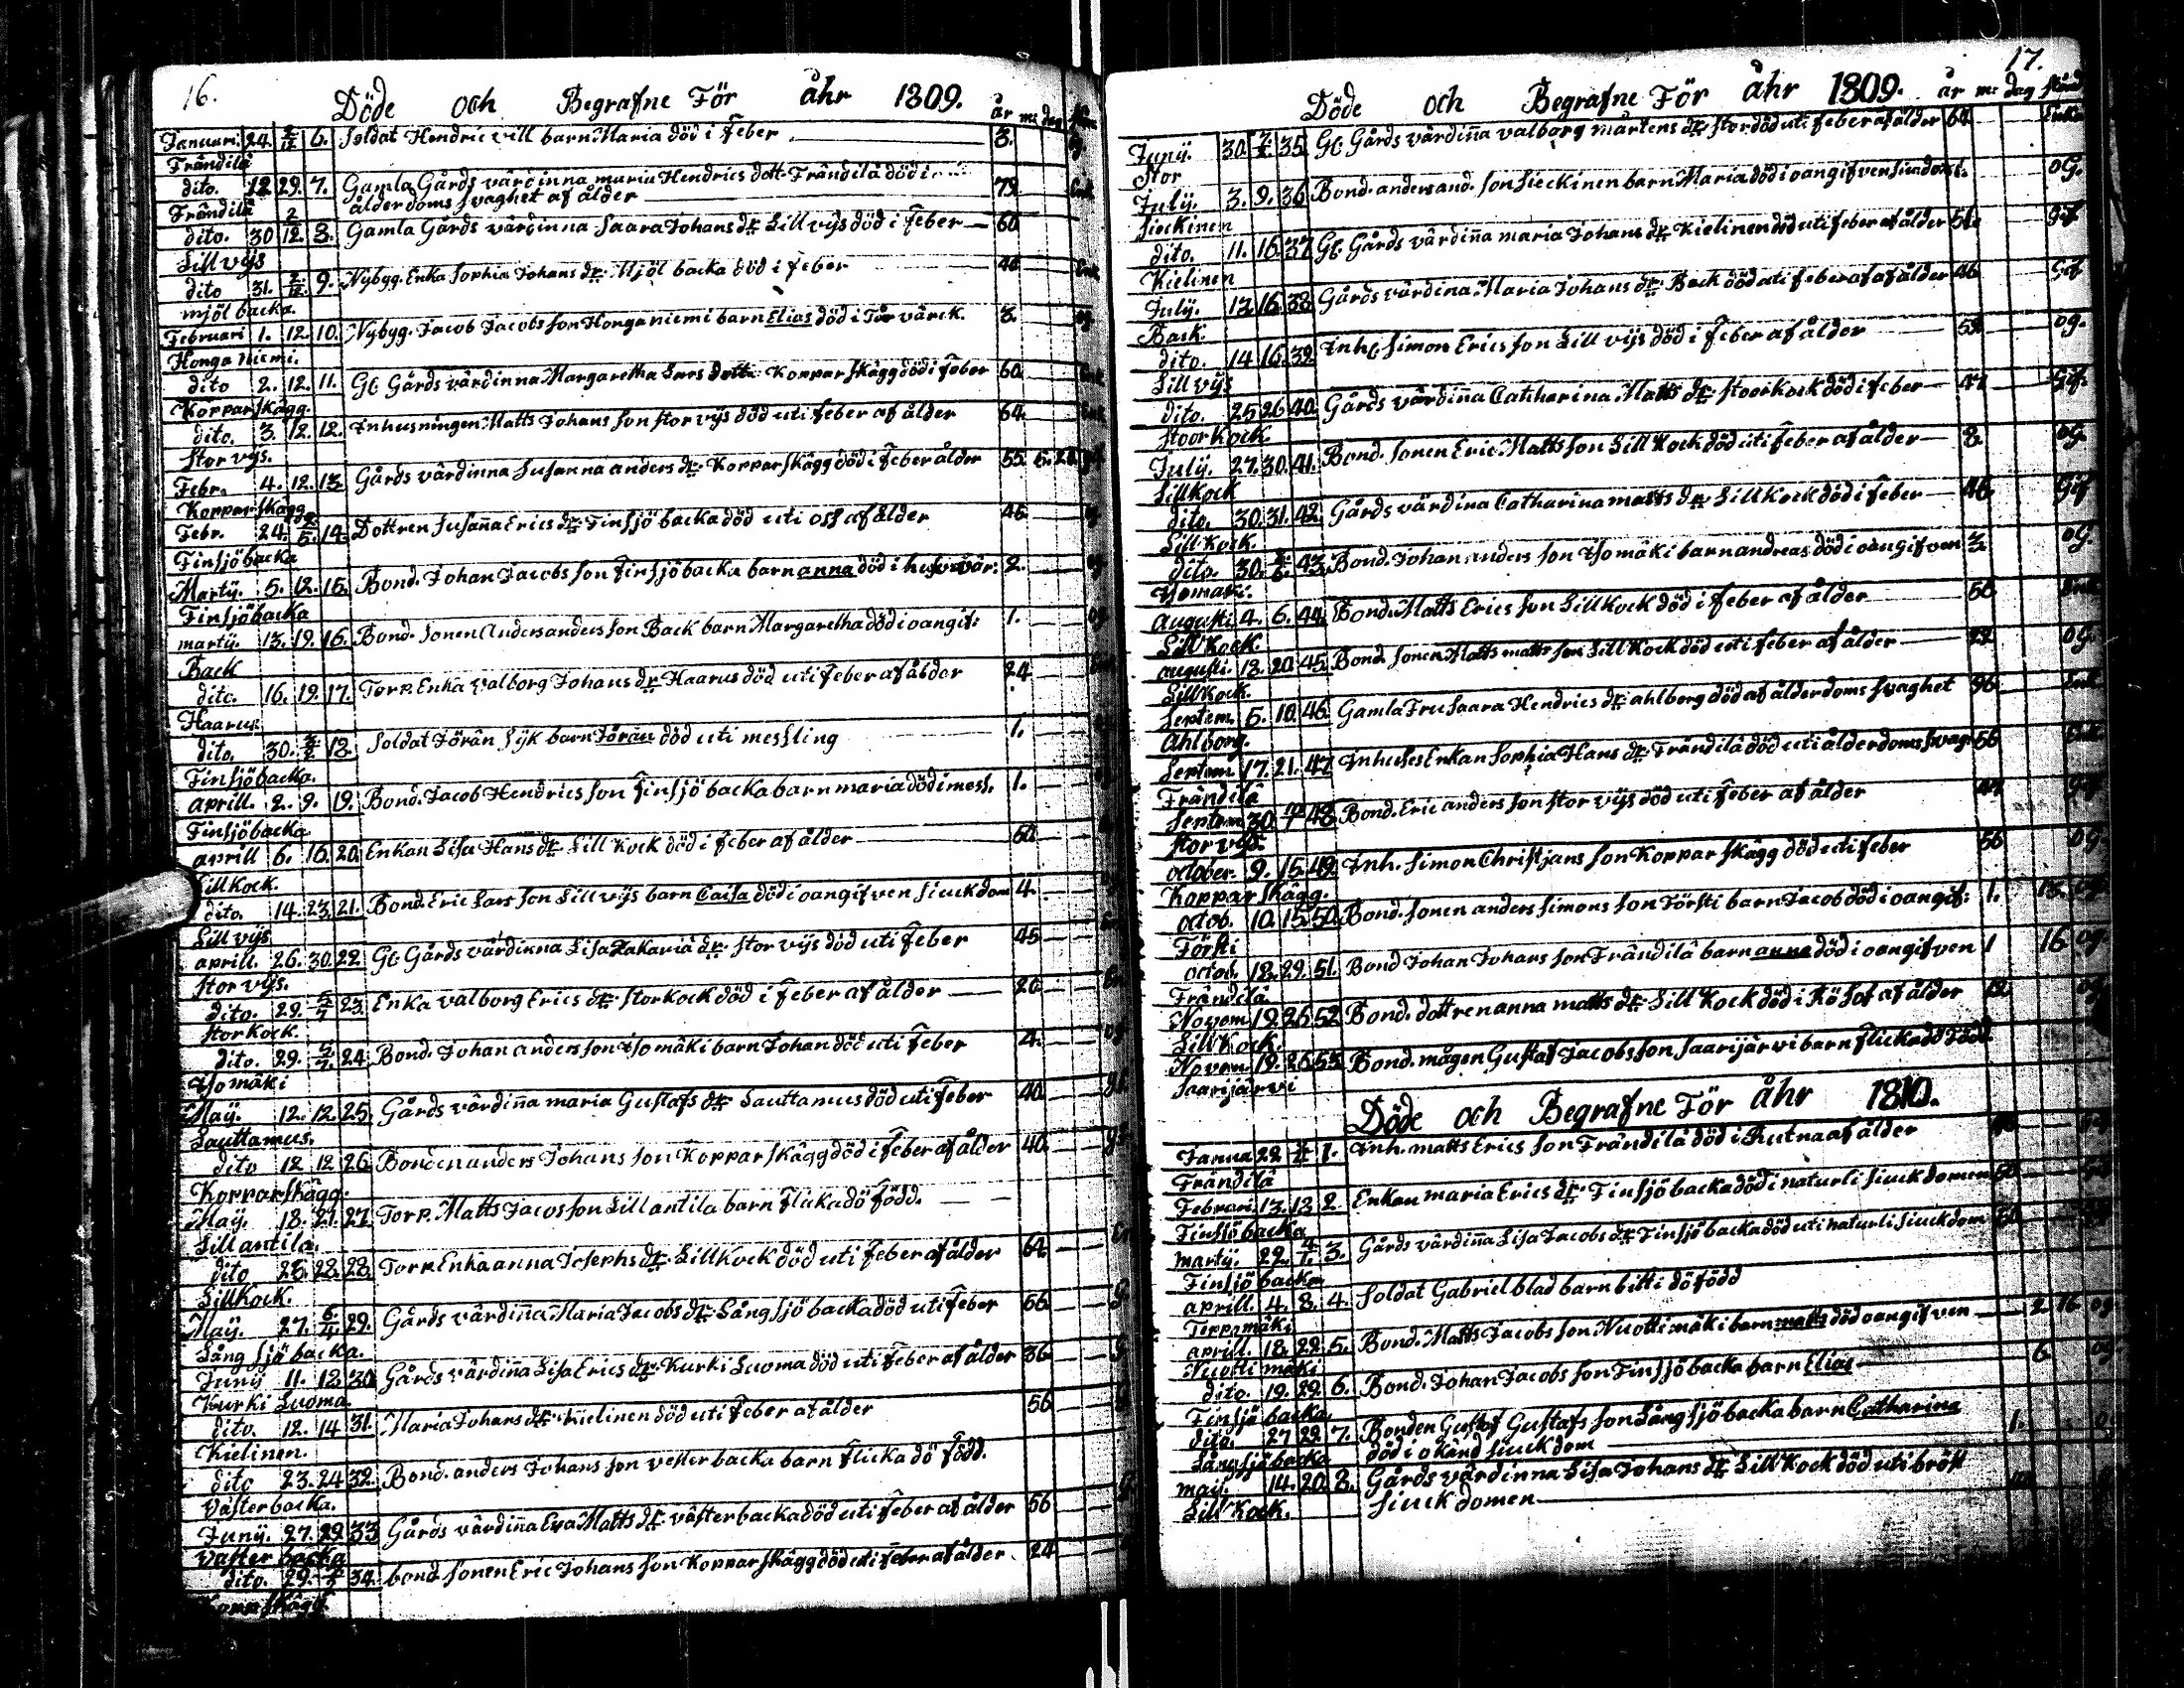 16.
Döde och Begrafne För åhr 1809.
år m: dag
Januari. 24. 2/12 6. Soldat Hendric vill barn Maria död i feber 3.
Frändilä
dito. 12 29. 7. Gamla Gårds värdinna maria Hendrics dott. Frändilä död i 79
ålderdoms svaghet af ålder
Frändilä
dito. 30 2/12. 8. Gamla Gårds värdinna Saara Johans dr. Lill vijs död i feber 60
Lill vijs
dito 31. 2/12. 9. Nybygg. Enka Sophia Johans dr. Mjöl backa död i feber Enk
mjöl backa.
Februari 1. 12. 10. Nybygg. Jacob Jacobs son Honganiemi barn Elias död i Tår värck. 3. og
Honga niemi.
dito 2. 12. 11. Gl. Gårds värdinna Margaretha Lars dott. Koppar skägg död i feber 60 Enk
Koppar skägg.
dito. 3. 12. 12. Inhusningen Matts Johans son stor vijs död uti feber af ålder 64. Enk
stor vijs.
Febr. 4. 12. 13. Gårds värdinna Susanna anders dr. Koppar skägg död i feber ålder 55.
Koppar skägg
Febr. 24. 14. Dottren Susaña Erics dr. Finsjö backa död uti af ålder 46
Finsjöbacka
Martij. 5. 12. 15. Bond. Johan Jacobs son Finsjöbacka barn anna död i 2. og
Finsjöbacka
martij. 13. 19. 16. Bond. sonen Anders anders son Back barn Margaretha död i oangif: 1. og
Back
dito. 16. 19. 17. Torp. Enka Valborg Johans dr. Haarus död uti feber af ålder 24
Haarus.
dito. 30. 18. Soldat Jöran sijk barn Jöran död uti messling 1.
Finsjöbacka.
aprill. 2. 9. 19. Bond. Jacob Hendrics son Finsjö backa barn maria död i mess. 1.
Finsjöbacka
aprill 6. 16. 20. Enkan Lisa Hans dr. Lill kock död i feber af ålder 60.
Lill kock.
dito. 14. 23. 21. Bond. Eric Lars son Lill vijs barn Caisa död i oangifven siuckdom 4.
Lill vijs
aprill. 26. 30. 22. Gl. Gårds värdinna Lisa Zakariä dr. stor vijs död uti feber 45
stor vijs.
dito. 29. 5/7 23. Enka valborg Erics dr. stor kock död i feber af ålder 26
storkock.
dito. 29. 5/7. 24. Bond. Johan anders son Isomäki barn Johan död uti feber 4. og
Isomäki
Maij. 12. 12. 25. Gårds värdiña maria Gustafs dr. Lauttamus död uti feber 40
Lauttamus.
dito 12 12 26. Bonden anders Johans son Koppar skägg död i feber af ålder 40.
Koppar skägg.
Maij. 18. 21. 27. Torp. Matts Jacobs son Lill antila barn flicka dö född.
Lill antila.
dito 23. 28. 28. Torp. Enka anna Josephs dr. Lillkock död uti feber af ålder 64.
Lillkock.
Maij. 27. 6/4 29. Gårds värdiña Maria Jacobs dr. Lång sjö backa död uti feber 56
Lång sjö backa.
Junij 11. 12. 30. Gårds värdiña Lisa Erics dr. Kurki Luoma död uti feber af ålder 36
Kurki Luoma.
dito. 12. 14 31. Maria Johans dr. Kielinen död uti feber af ålder 56
Kielinen.
dito 23. 24 32. Bond. anders Johans son vester backa barn flicka dö född.
Väster backa.
Junij. 27. 29. 33 Gårds värdiña Eva Matts dr. väster backa död uti feber af ålder 56
Väster backa
dito. 29. 34. bond. sonen Eric Johans son Koppar skägg död uti feber af ålder 24
17.
Döde och Begrafne För åhr 1809.
år m: dag stånd
Junij. 30. 35. Gl. Gårds värdiña valborg mårtens dr. stor död uti feber af ålder 64 Enka
Stor
Julij. 3. 9. 36 Bond. anders and. son sieckinen barn Maria död i oangifven siuckdom. oG.
Sieckinen
dito. 11. 16. 37 Gl. Gårds värdiña maria Johans dr. Kielinen död uti feber af ålder Gif
Kielinen
Julij. 13. 16. 38. Gårds värdina Maria Johans dr. Back död uti feber af af ålder 46 Gif
Back.
dito. 14 16. 39. Inh. Simon Erics son Lill vijs död i feber af ålder 52 og.
Lill vijs
dito. 25 26 40. Gårds värdiña Catharina Matts dr. stoor kock död i feber Gif.
stoor kock.
Julij. 27. 30. 41. Bond. sonen Eric Matts son Lill kock död uti feber af ålder 8 oG.
Lillkock
dito. 30. 31. 42. Gårds värdina Catharina matts dr. Lillkock död i feber 46 Gif
Lill kock.
dito. 30. 43. Bond. Johan anders son Isomäki barn andreas död i oangifven oG.
Isomäki.
Augusti. 4. 6. 44. Bond. Matts Erics son Lillkock död i feber af ålder
Lill kock.
augusti. 18. 20. 45. Bond. sonen Matts matts son Lill kock död uti feber af ålder 22 oG.
Lillkock.
Septem. 5. 10. 46. Gamla Fru Saara Hendrics dr. ahlborg död af ålderdoms svaghet 96 Enk.
Ahlborg.
Septem. 17. 21. 47. Inhuses Enkan Sophia Hans dr. Frändilä död uti ålderdoms svag. 56 Enk.
Frändilä
Septem. 30. 48. Bond. Eric anders son stor vijs död uti feber af ålder gif
stor vijs.
october. 9. 15. 49. Inh. Simon Christjans son Koppar skägg död uti feber 56 oG.
Koppar skägg.
octob. 10. 15. 50. Bond. sonen anders Simons son Försti barn Jacob död i oangif: 1. og
Försti
octob. 12. 29. 51. Bond Johan Johans son Frändilä barn anna död i oangifven 1 16 og.
Frändilä
Novem. 19. 26. 52. Bond. dottren anna matts dr. Lill kock död i af ålder 12 og
Lill kock.
Novem. 19. 26. 53. Bond. mågen Gustaf Jacobs son Saarijärvi barn flicka dö född.
Saarijärvi
Döde och Begrafne För åhr 1810.
Janua 28 1. Inh. matts Erics son Frändilä död i af ålder
Frändilä
Februari 13. 18 2. Enkan maria Erics dr. Finsjö backa död i naturli siuckdomen
Finsjö backa
martij. 29. 3. Gårds värdiña Lisa Jacobs dr. Finsjö backa död uti naturli siuckdom
Finsjö backa
aprill. 4. 8. 4. Soldat Gabriel blad barn dö född
aprill. 18. 22. 5. Bond. Matts Jacobs son Nuottimäki barn matts död oangifven 2 16 og.
Nuotti mäki
dito. 19. 29. 6. Bond. Johan Jacobs son Finsjö backa barn Elias 6. og
Finsjö backa
dito. 27 29. 7. Bonden Gustaf Gustafs son Lång sjö backa barn Catharina 1.
Lång sjö backa död i okänd siuckdom
maij. 14. 20. 8. Gårds värdinna Lisa Johans dr. Lill kock död uti bröst
Lill kock. siuckdomen